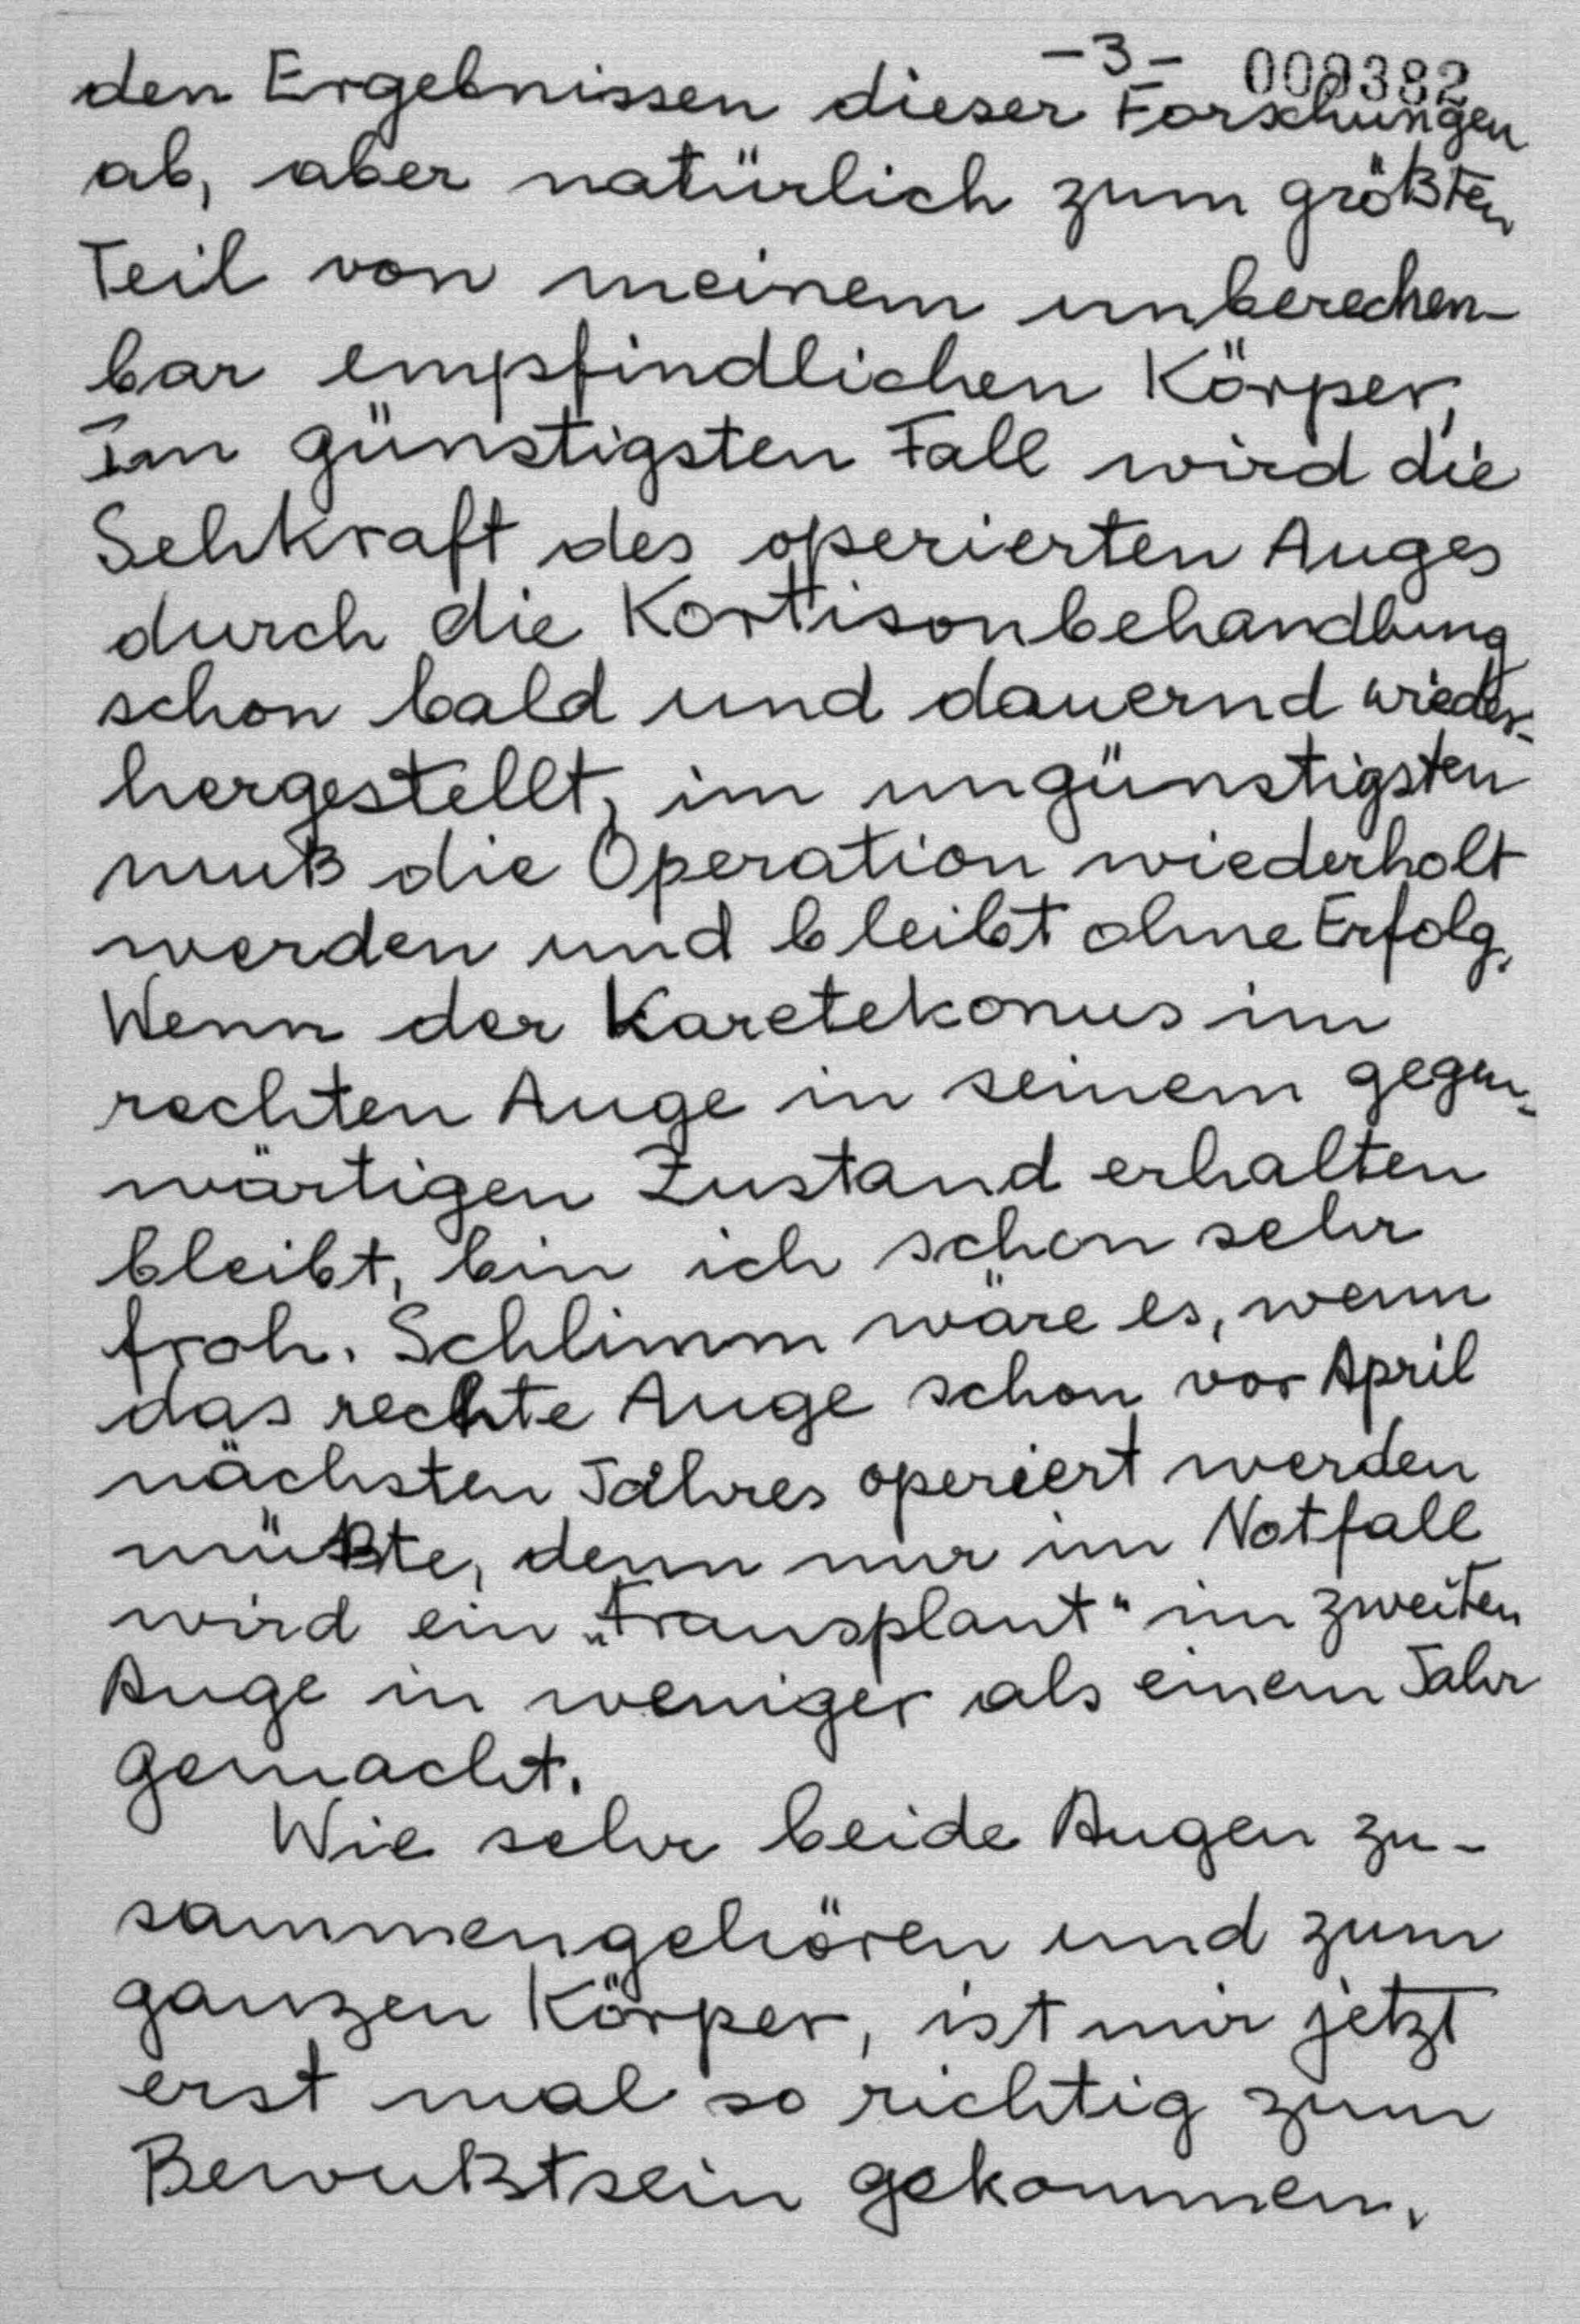 -3- 009382
den Ergebnissen dieser Forschungen
ab, aber natürlich zum größten
Teil von meinem unberechen-
bar empfindlichen Körper,
Im günstigsten Fall wird die
Sehkraft des operierten Auges
durch die Kortisonbehandlung
schon bald und dauernd wieder-
hergestellt, im ungünstigsten
muß die Operation wiederholt
werden und bleibt ohne Erfolg.
Wenn der Karetekonus im
rechten Auge in seinem gegen-
wärtigen Zustand erhalten
bleibt, bin ich schon sehr
froh. Schlimm wäre es, wenn
das rechte Auge schon vor April
nächsten Jahres operiert werden
müßte, denn nur im Notfall
wird ein „Transplant“ im zweiten
Auge in weniger als einem Jahr
gemacht.
Wie sehr beide Augen zu-
sammengehören und zum
ganzen Körper, ist mir jetzt
erst mal so richtig zum
Bewußtsein gekommen.